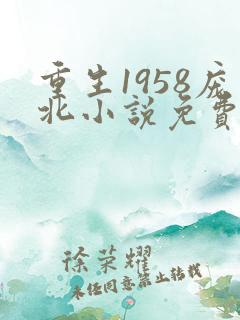 重生1958庞
北小说免费
徐荣耀
未经同意禁止转载